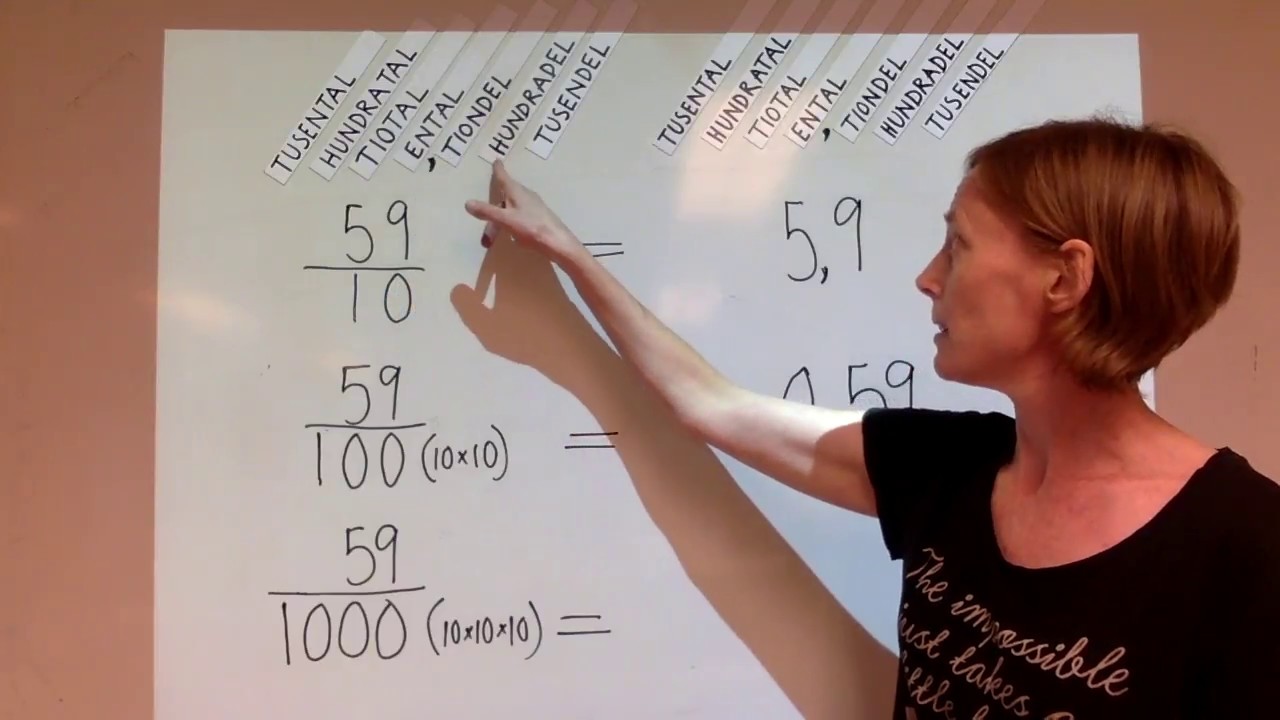 TUSENTAL HUNDRATAL TIOTAL ENTAL , TIONDEL HUNDRADEL TUSENDEL
TUSENTAL HUNDRATAL TIOTAL ENTAL , TIONDEL HUNDRADEL TUSENDEL
59
10
= 5,9
59
100 (10×10) = 0,59
59
1000 (10×10×10) =
The impossible
just takes a
little